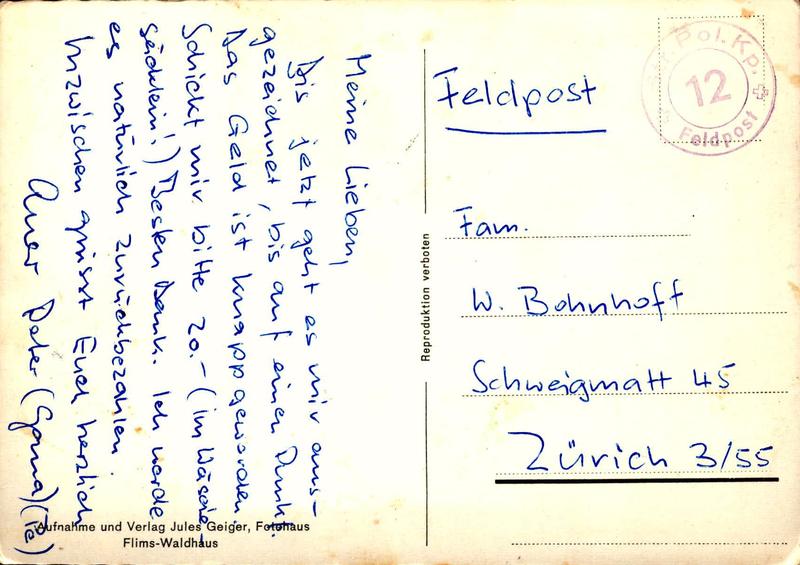 Meine Lieben,
Bis jetzt geht es mir aus-
gezeichnet, bis auf einen Punkt.
Das Geld ist knapp geworden.
Schickt mir bitte 20.- (im Wäsche-
säcklein!) Besten Dank. Ich werde
es natürlich zurückbezahlen.
Inzwischen grüsst Euch herzlich
Euer Peter
Aufnahme und Verlag Jules Geiger, Fotohaus
Flims-Waldhaus
Reproduktion verboten
Pol. Kp.
12
Feldpost
Feldpost
Fam.
W. Bohnhoff
Schweigmatt 45
Zürich 3/55